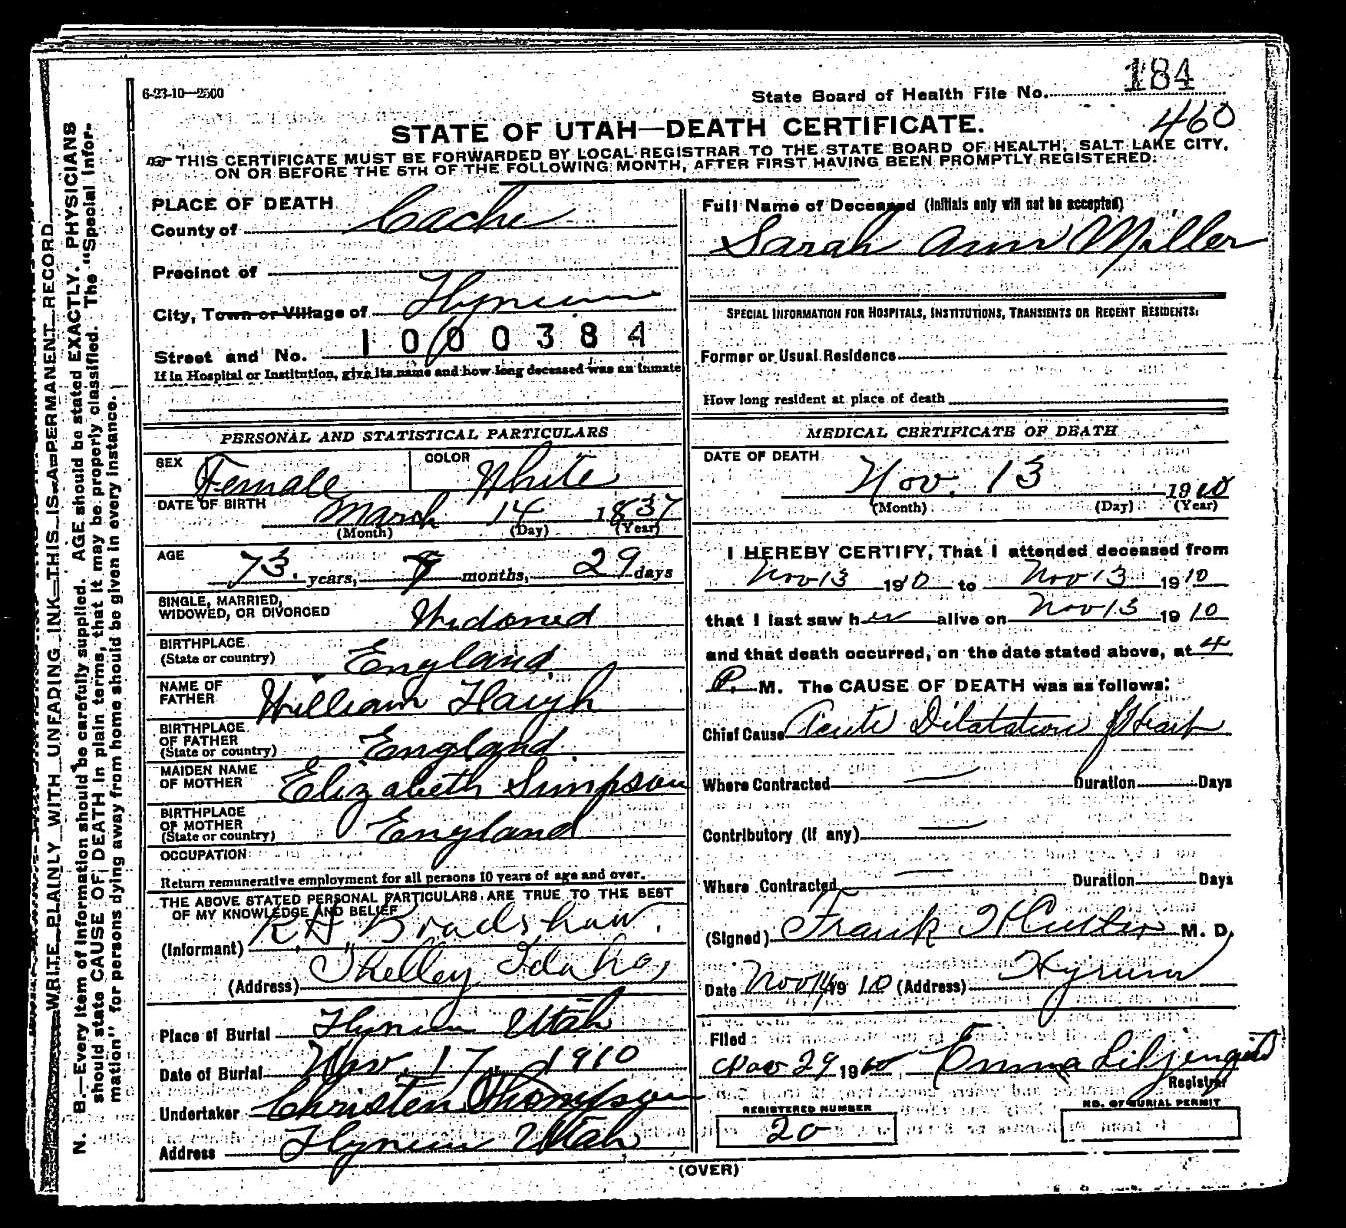 6-23-10—2500
State Board of Health File No. 184
460
STATE OF UTAH—DEATH CERTIFICATE.
THIS CERTIFICATE MUST BE FORWARDED BY LOCAL REGISTRAR TO THE STATE BOARD OF HEALTH, SALT LAKE CITY,
ON OR BEFORE THE 5TH OF THE FOLLOWING MONTH, AFTER FIRST HAVING BEEN PROMPTLY REGISTERED.
WRITE PLAINLY WITH UNFADING INK—THIS IS A PERMANENT RECORD
N. B.—Every item of information should be carefully supplied. AGE should be stated EXACTLY. PHYSICIANS
should state CAUSE OF DEATH in plain terms, that it may be properly classified. The "Special Infor-
mation" for persons dying away from home should be given in every instance.
PLACE OF DEATH
County of Cache
Precinct of
City, Town or Village of Hyrum
1000384
Street and No.
If in Hospital or Institution, give its name and how long deceased was an inmate
PERSONAL AND STATISTICAL PARTICULARS
SEX Female COLOR White
DATE OF BIRTH March 14 1837
(Month) (Day) (Year)
AGE 73 years, months, 29 days
SINGLE, MARRIED,
WIDOWED, OR DIVORCED Widowed
BIRTHPLACE
(State or country) England
NAME OF
FATHER William Haigh
BIRTHPLACE
OF FATHER
(State or country) England
MAIDEN NAME
OF MOTHER Elizabeth Simpson
BIRTHPLACE
OF MOTHER
(State or country) England
OCCUPATION
Return remunerative employment for all persons 10 years of age and over.
THE ABOVE STATED PERSONAL PARTICULARS ARE TRUE TO THE BEST
OF MY KNOWLEDGE AND BELIEF
(Informant) R H Bradshaw
(Address) Shelley Idaho
Place of Burial Hyrum Utah
Date of Burial Nov. 17, 1910
Undertaker Christen Thompson
Address Hyrum Utah
Full Name of Deceased (Initials only will not be accepted)
Sarah Ann Miller
SPECIAL INFORMATION FOR HOSPITALS, INSTITUTIONS, TRANSIENTS OR RECENT RESIDENTS:
Former or Usual Residence
How long resident at place of death
MEDICAL CERTIFICATE OF DEATH
DATE OF DEATH
Nov. 13 1910
(Month) (Day) (Year)
I HEREBY CERTIFY, That I attended deceased from
Nov 13 1910 to Nov 13 1910
that I last saw her alive on Nov 13 1910
and that death occurred, on the date stated above, at 4
P. M. The CAUSE OF DEATH was as follows:
Chief Cause Acute Dilatation of Heart
Where Contracted — Duration Days
Contributory (if any) —
Where Contracted — Duration Days
(Signed) Frank M. D.
Date Nov 14 1910 (Address) Hyrum
Filed
Nov 29 1910 Emma Liljenquist
Registrar
REGISTERED NUMBER
20
NO. OF BURIAL PERMIT
(OVER)